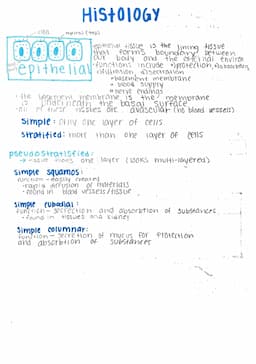 HiStOLOGY
cells
epithelial
epithelial tissue is the lining tissue
that forms boundary between
our body and the external enviro
functions include protection,
filtration, secretion
basement membrane
blood supply
nerve endings
the basement membrane is the membrane
underneath the basal surface
all of these tissues are avascular (no blood vessels)
Simple: only one layer of cells.
Stratified: more than one layer of cells
pseudostratified:
one layer (looks multi-layered)
Simple squamos:
function -
rapid diffusion of materials
found in blood vessels/tissue
simple cubodial:
function - secrection and absorbtion of substances
found in tissues and kidney
simple columnar:
function - secretion of mucus for protection
and absorbtion of substances